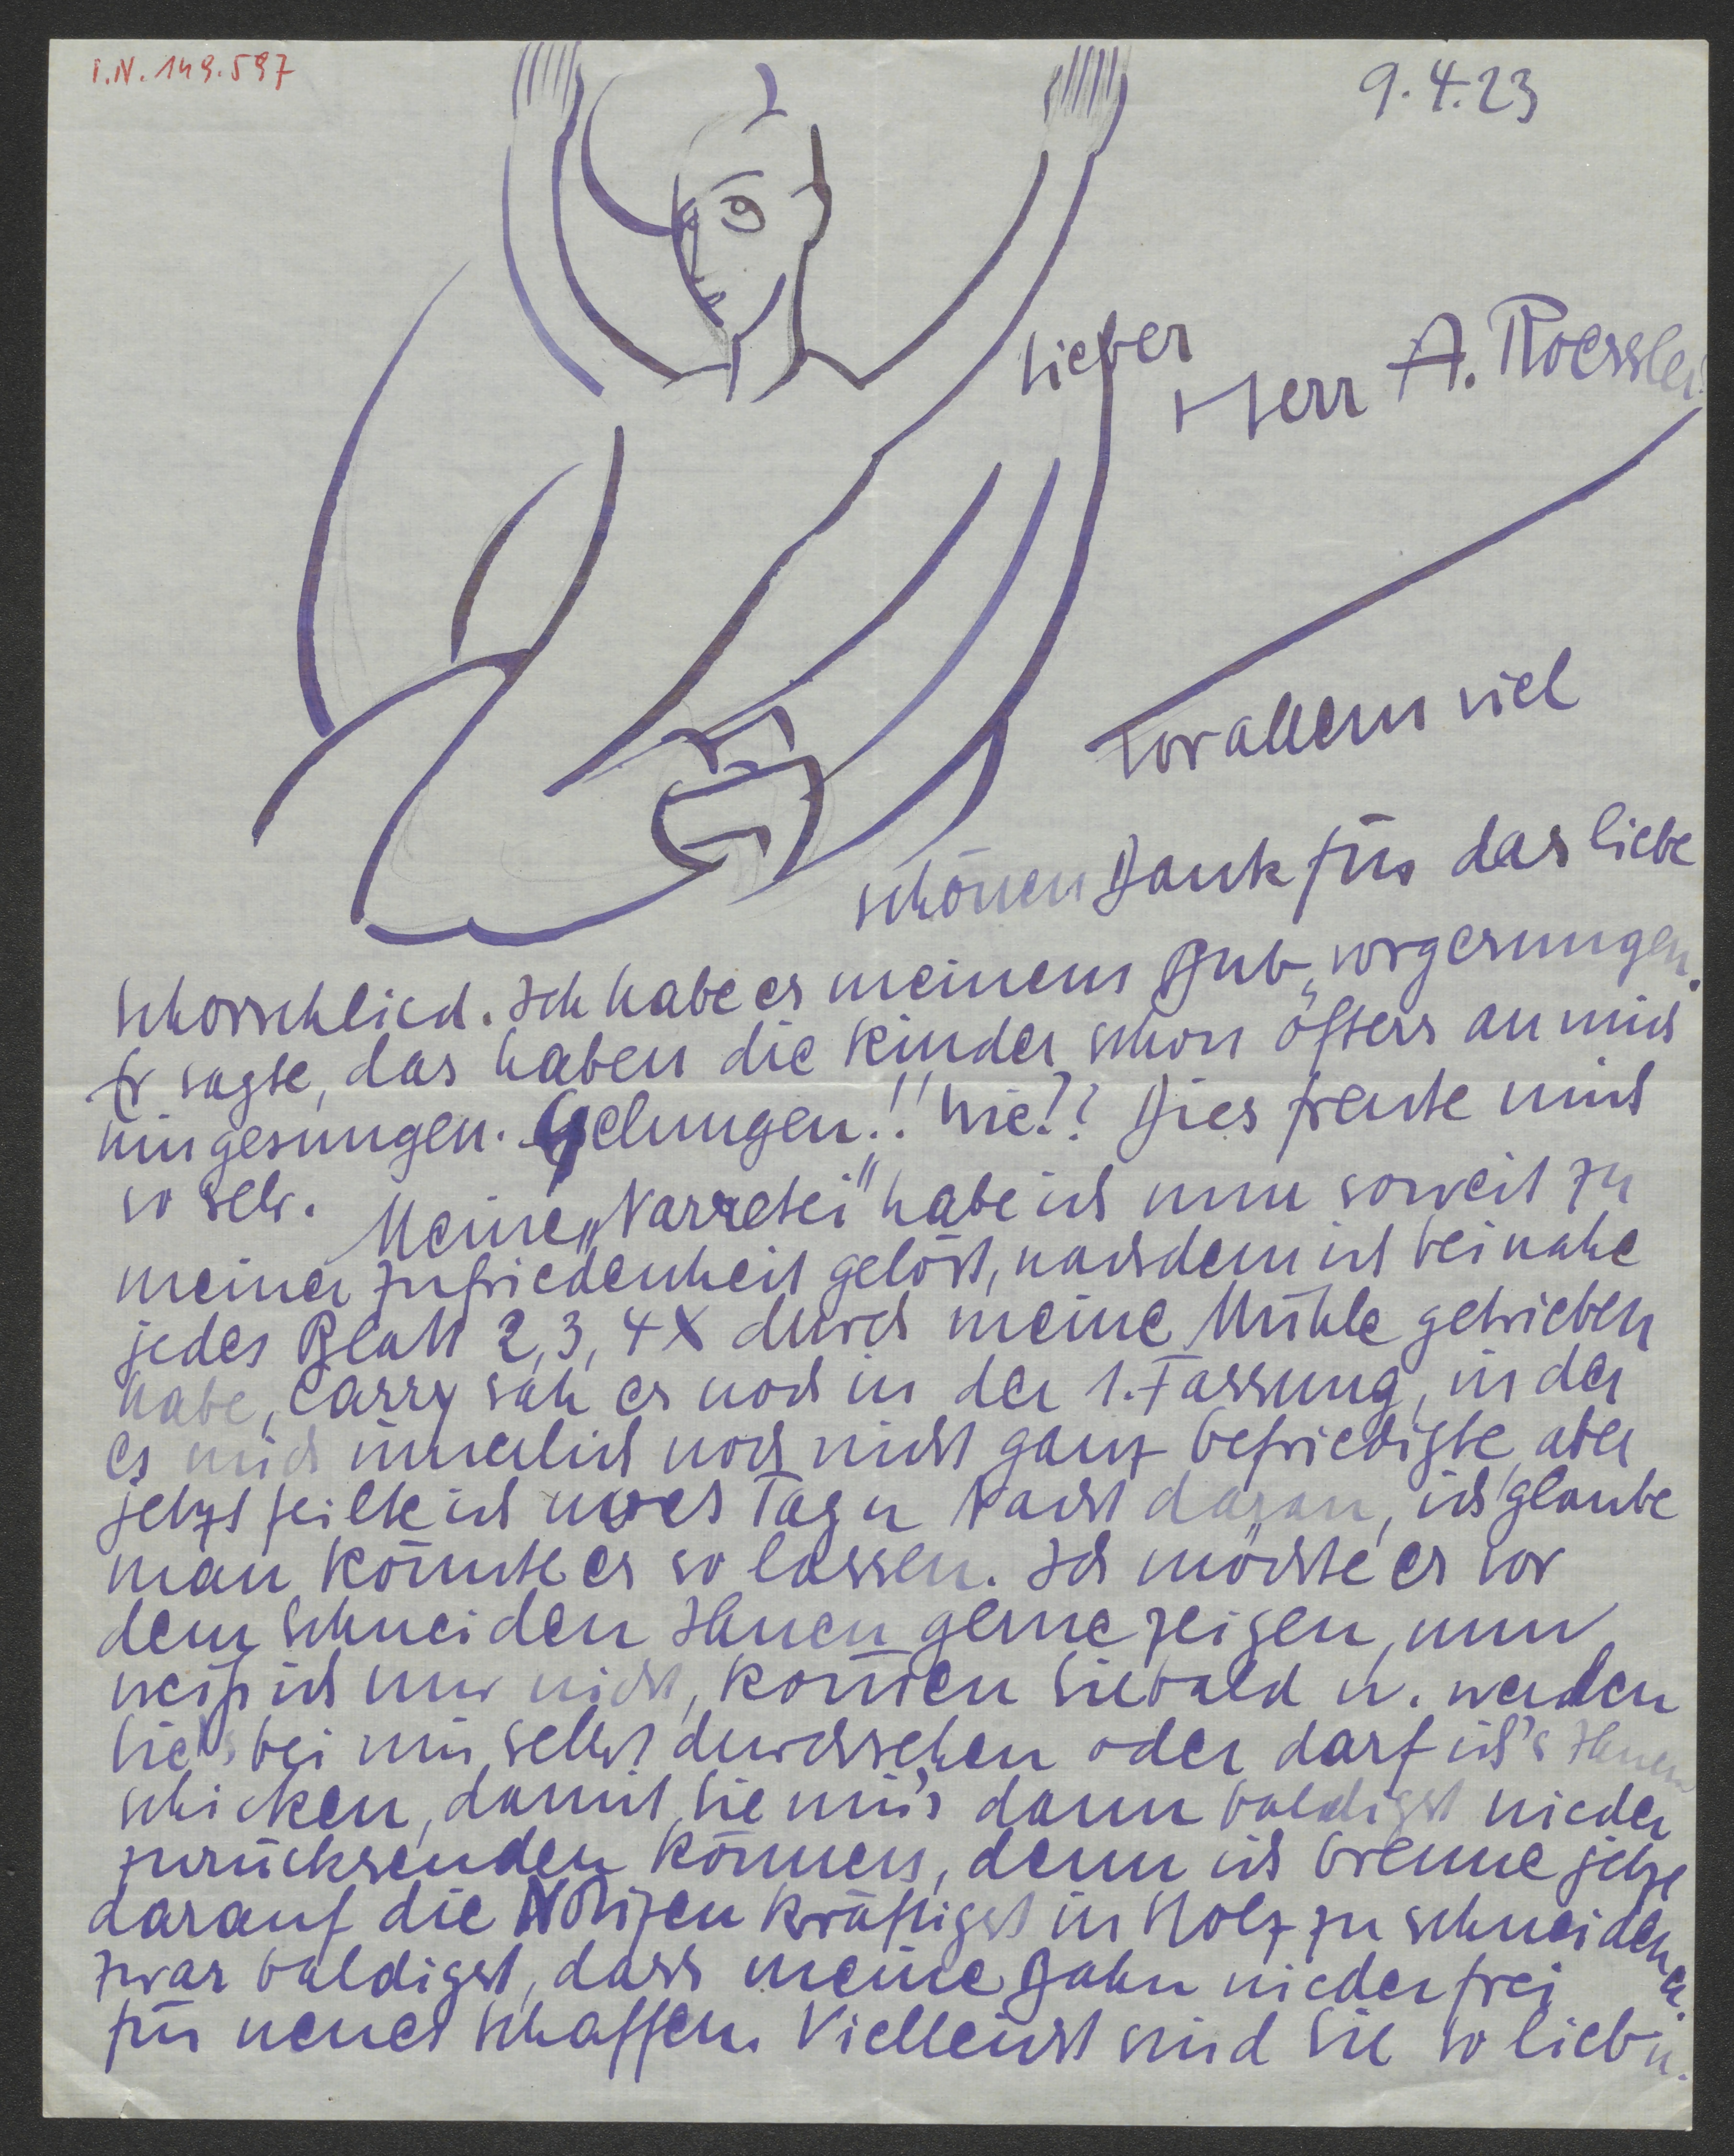 I.N. 149.597
9.4.23
Lieber
Herr A. Roessler
Vor allem viel
schönen Dank für das liebe
Schorschlied. Ich habe es meinem Bub vorgesungen.
Er sagte, das haben die Kinder schon öfters an mich
hingesungen. Gelungen!! Wie!? Dies freute mich
so sehr.
Meine „Narretei" habe ich nun soweit zu
meiner Zufriedenheit gelöst, nachdem ich beinahe
jedes Blatt 2, 3, 4 X durch meine Mühle getrieben
habe, Carry sah es noch in der 1. Fassung, in der
es mich innerlich noch nicht ganz befriedigte, aber
jetzt feilte ich noch Tag u Nacht daran, ich glaube
man könnte es so lassen. Ich möchte es vor
dem Schneiden Ihnen gerne zeigen, nun
weiß ich nur nicht, kommen Sie bald u. werden
Sie's bei mir selbst durchsehen oder darf ich's Ihnen
schicken, damit Sie mir's dann baldigst wieder
zurücksenden können, denn ich brenne jetzt
darauf die Notizen kräftigst in Holz zu schneiden u.
zwar baldigst, dass meine Bahn wieder frei
für neues Schaffen. Vielleicht sind Sie so lieb u.